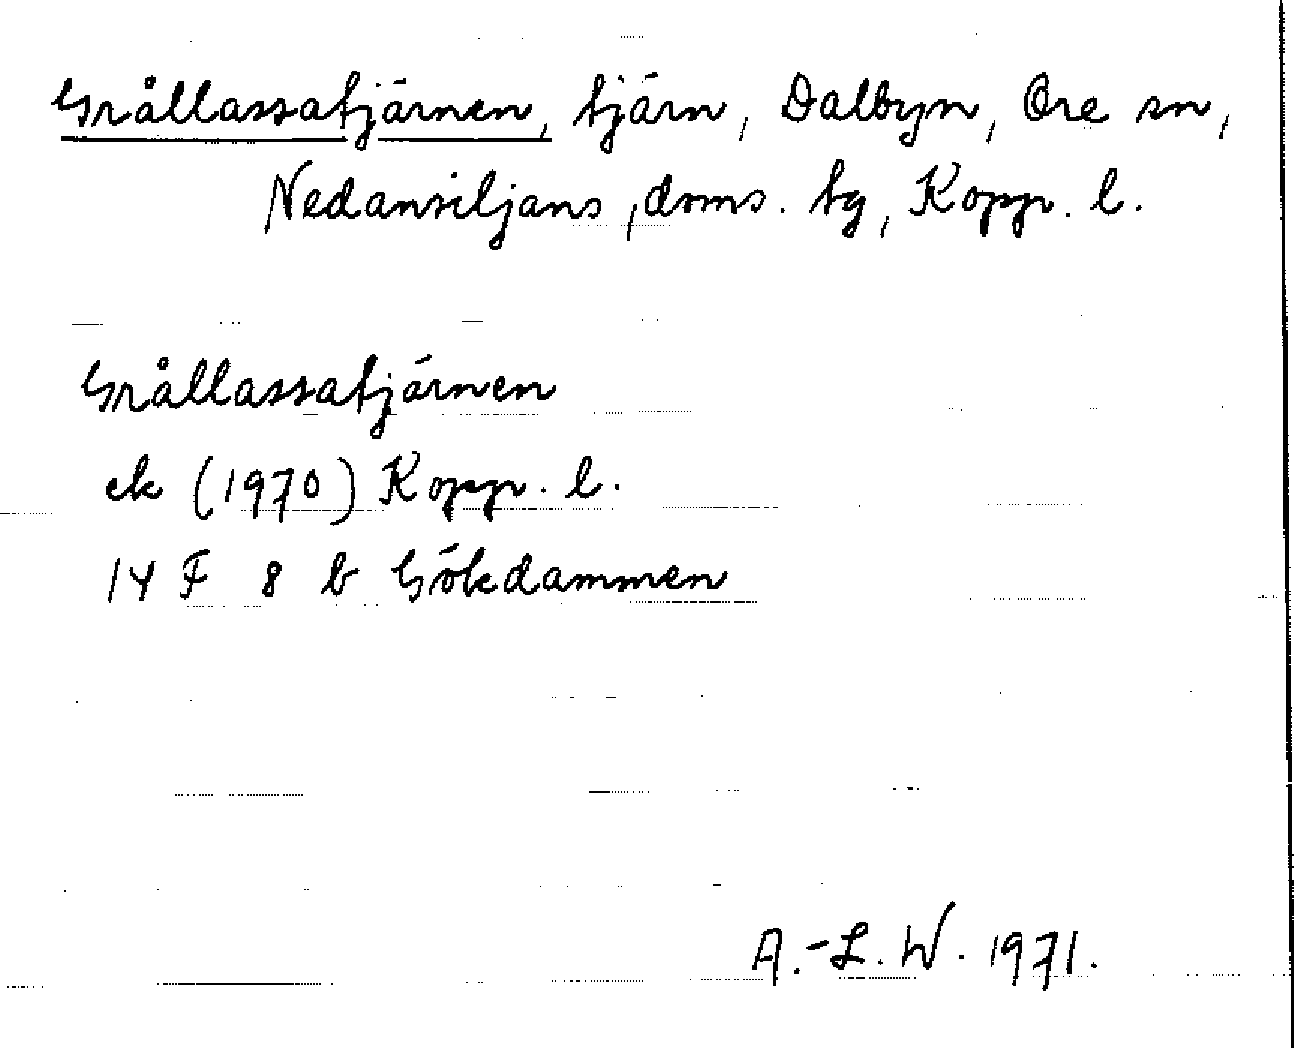 Grållassatjärnen, tjärn, Dalbyn, Ore sn,
Nedansiljans, doms. tg, Kopp. l.
Grållassatjärnen
ek (1970) Kopp. l.
14 F 8 b Gökdammen
A.-L. W. 1971.